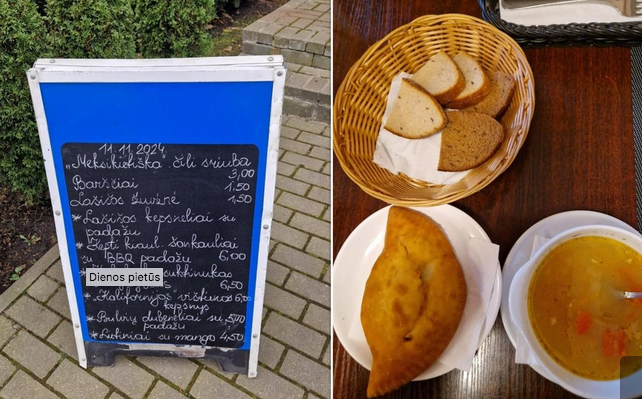 11.11.2024
„Meksikietiška" čili sriuba
3,00
Barščiai 1,50
Lašišos žuvienė 4,50
* Lašišos kepsneliai su
padažu
* Kepti kiaul. šonkauliai
su BBQ padažu 6,00
Dienos pietūs
6,50
* Kalifornijos vištienos 6,00
kepsnys
* Bulvių
su
padažu
* Lietiniai su mango 4,50